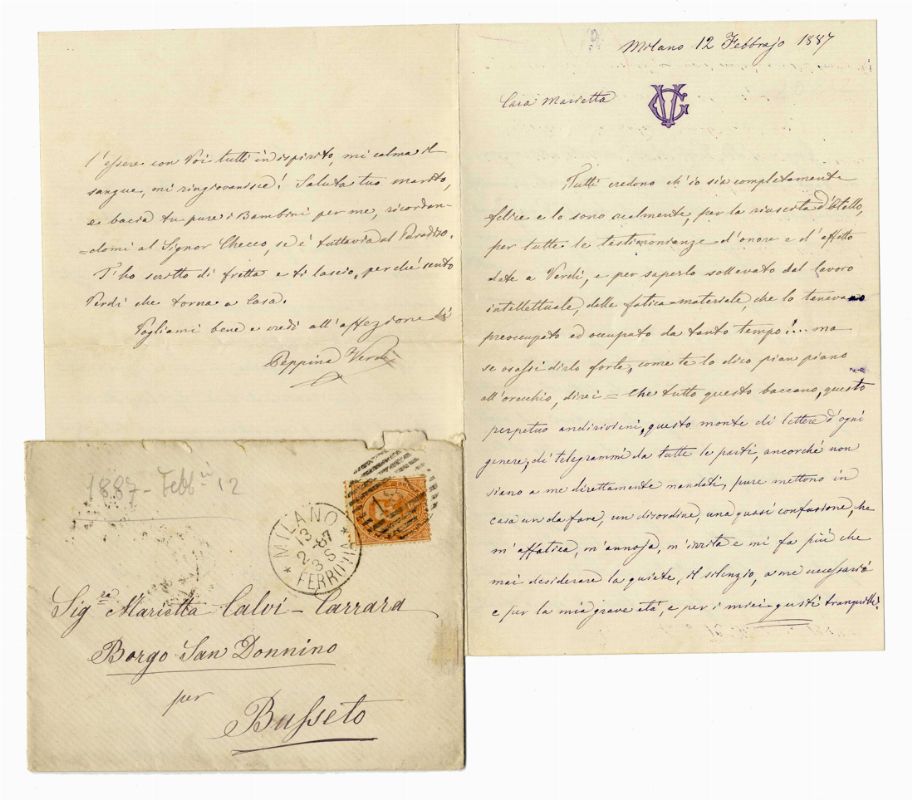 Milano 12 Febbrajo 1887
Cara Marietta
VG
Tutti credono ch'io sia completamente
felice e lo sono realmente, per la riuscita d'Otello,
per tutte le testimonianze d'onore e d'affetto
date a Verdi, e per saperlo sollevato dal lavoro
intellettuale, dalle fatica materiale, che lo tenevano
preoccupato ed occupato da tanto tempo!... ma
se osassi dirlo forte, come te lo dico pian piano
all'orecchio, direi = che tutto questo baccano, questo
perpetuo andirivieni, questo monte di lettere d'ogni
genere, di telegrammi da tutte le parti, ancorché non
siano a me direttamente mandati, pure mettono in
casa un da fare, un disordine, una quasi confusione, che
m'affatica, m'annoja, m'irrita e mi fa più che
mai desiderare la quiete, il silenzio, a me necessarii
e per la mia grave età, e per i miei gusti tranquilli.
L'essere con Voi tutti in ispirito, mi calma il
sangue, mi ringiovanisce! Saluta tuo marito,
e bacia tu pure i Bambini per me, ricordan=
=domi al Signor Checco, se è tuttavia al Paradiso.
T'ho scritto di fretta e ti lascio, perché sento
Verdi che torna a Casa.
Vogliami bene e credi all'affezione di
Peppina Verdi
1887 - Febb 12
MILANO
13
87
2-8 S
FERROVIA
Sig.ra Marietta Calvi-Carrara
Borgo San Donnino
per
Busseto